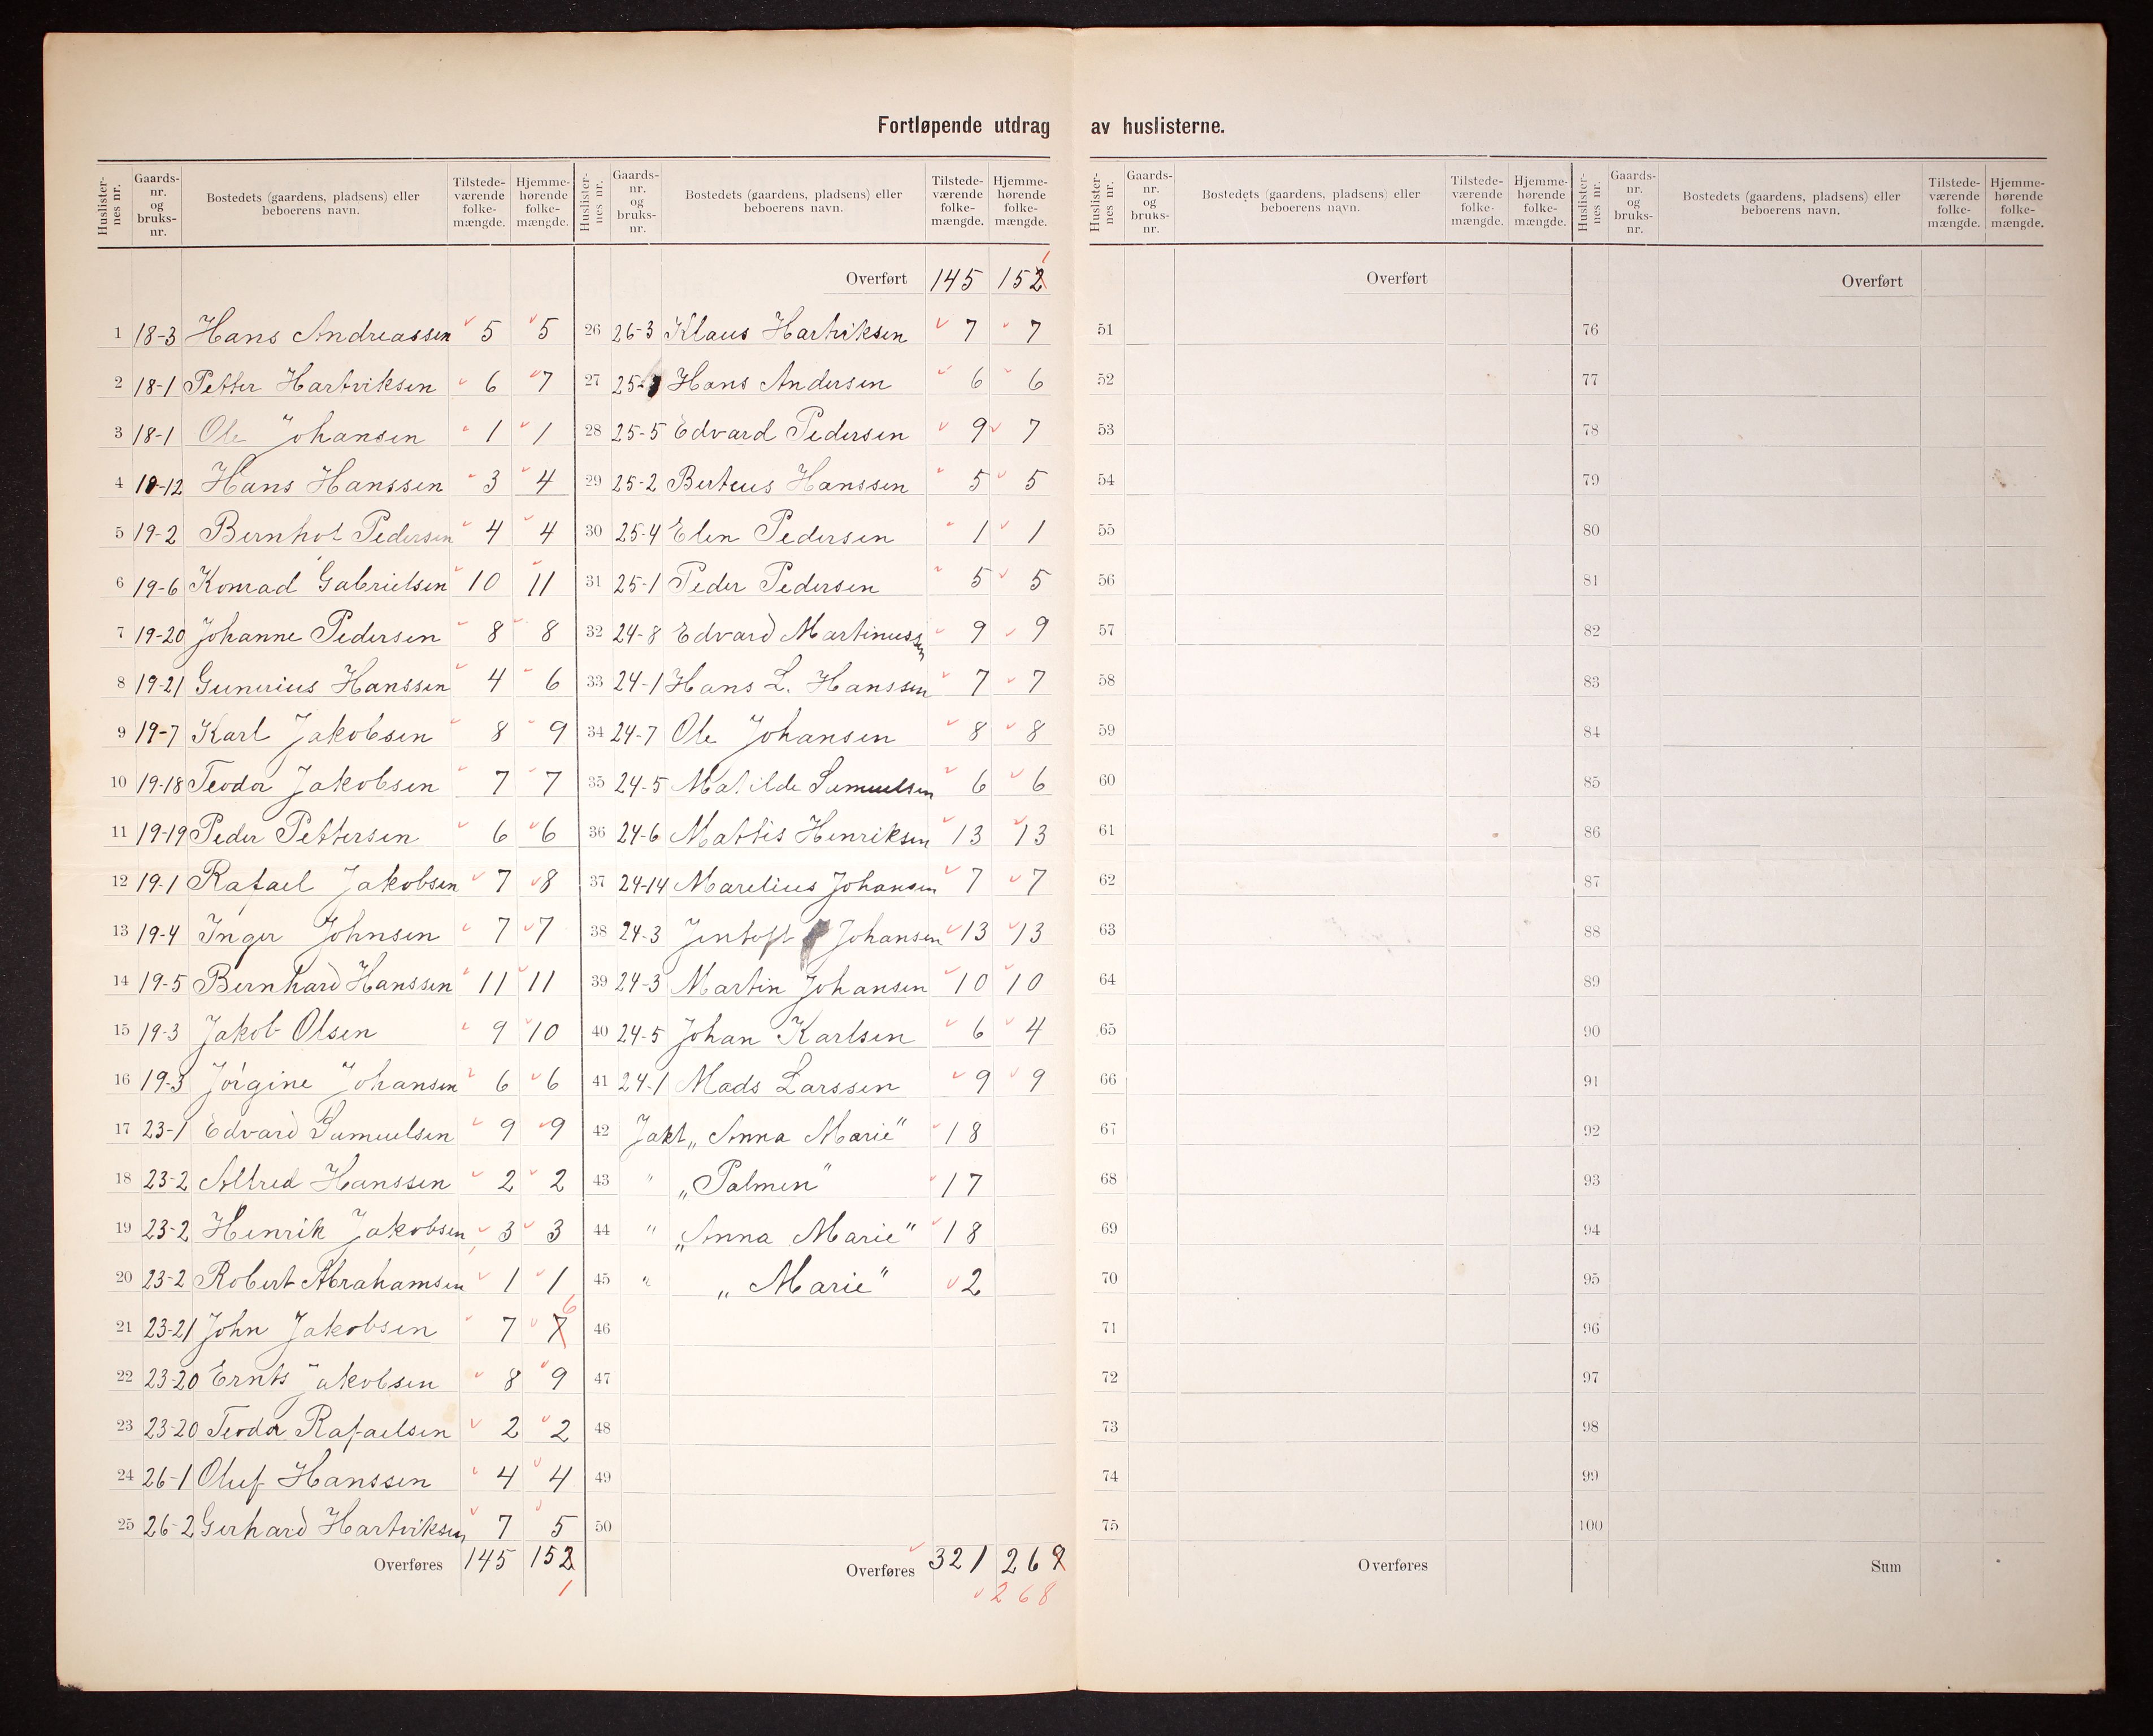 Fortløpende utdrag av huslisterne.
Huslister-nes nr. Gaards-nr. og bruks-nr. Bostedets (gaardens, pladsens) eller beboerens navn. Tilstede-værende folke-mængde. Hjemme-hørende folke-mængde.
1 18-3 Hans Andreassen 5 5
2 18-1 Petter Hartviksen 6 7
3 18-1 Ole Johansen 1 1
4 18-12 Hans Hanssen 3 4
5 19-2 Bernhot Pedersen 4 4
6 19-6 Konrad Gabrielsen 10 11
7 19-20 Johanne Pedersen 8 8
8 19-21 Gunerius Hanssen 4 6
9 19-7 Karl Jakobsen 8 9
10 19-18 Teodor Jakobsen 7 7
11 19-19 Peder Pettersen 6 6
12 19-1 Rafael Jakobsen 7 8
13 19-4 Inger Johnsen 7 7
14 19-5 Bernhard Hanssen 11 11
15 19-3 Jakob Olsen 9 10
16 19-3 Jørgine Johansen 6 6
17 23-1 Edvard Samuelsen 9 9
18 23-2 Alfred Hanssen 2 2
19 23-2 Henrik Jakobsen 3 3
20 23-2 Robert Abrahamsen 1 1
21 23-21 John Jakobsen 7 7 6
22 23-20 Ernts Jakobsen 8 9
23 23-20 Teodor Rafaelsen 2 2
24 26-1 Oluf Hanssen 4 4
25 26-2 Gerhard Hartviksen 7 5
Overføres 145 152
1
Huslister-nes nr. Gaards-nr. og bruks-nr. Bostedets (gaardens, pladsens) eller beboerens navn. Tilstede-værende folke-mængde. Hjemme-hørende folke-mængde.
Overført 145 152 1
26 26-3 Klaus Hartviksen 7 7
27 25- Hans Andersen 6 6
28 25-5 Edvard Pedersen 9 7
29 25-2 Berteus Hanssen 5 5
30 25-4 Elen Pedersen 1 1
31 25-1 Peder Pedersen 5 5
32 24-8 Edvard Martinussen 9 9
33 24-1 Hans L. Hanssen 7 7
34 24-7 Ole Johansen 8 8
35 24-5 Matilde Samuelsen 6 6
36 24-6 Mattis Henriksen 13 13
37 24-14 Marelius Johansen 7 7
38 24-3 Jentoft Johansen 13 13
39 24-3 Martin Johansen 10 10
40 24-5 Johan Karlsen 6 4
41 24-1 Mads Larssen 9 9
42 Jakt „Anna Marie" 18
43 " „Palmen" 17
44 " „Anna Marie" 18
45 " „Marie" 2
46
47
48
49
50
Overføres 321 269
268
Huslister-nes nr. Gaards-nr. og bruks-nr. Bostedets (gaardens, pladsens) eller beboerens navn. Tilstede-værende folke-mængde. Hjemme-hørende folke-mængde.
Overført
51
52
53
54
55
56
57
58
59
60
61
62
63
64
65
66
67
68
69
70
71
72
73
74
75
Overføres
Huslister-nes nr. Gaards-nr. og bruks-nr. Bostedets (gaardens, pladsens) eller beboerens navn. Tilstede-værende folke-mængde. Hjemme-hørende folke-mængde.
Overført
76
77
78
79
80
81
82
83
84
85
86
87
88
89
90
91
92
93
94
95
96
97
98
99
100
Sum